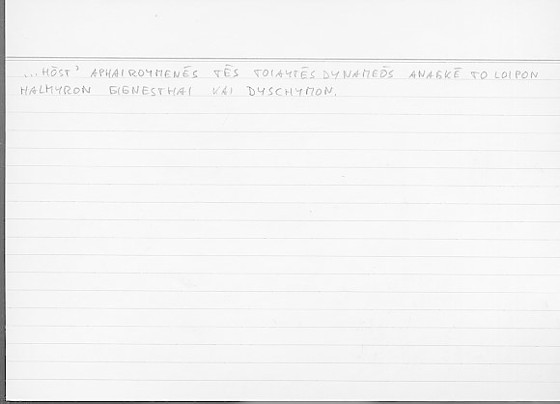 ...HŌST' APHAIROYMENĒS TĒS TOIAYTĒS DYNAMEŌS ANAGKĒ TO LOIPON
HALMYRON GIGNESTHAI KAI DYSCHYMON.